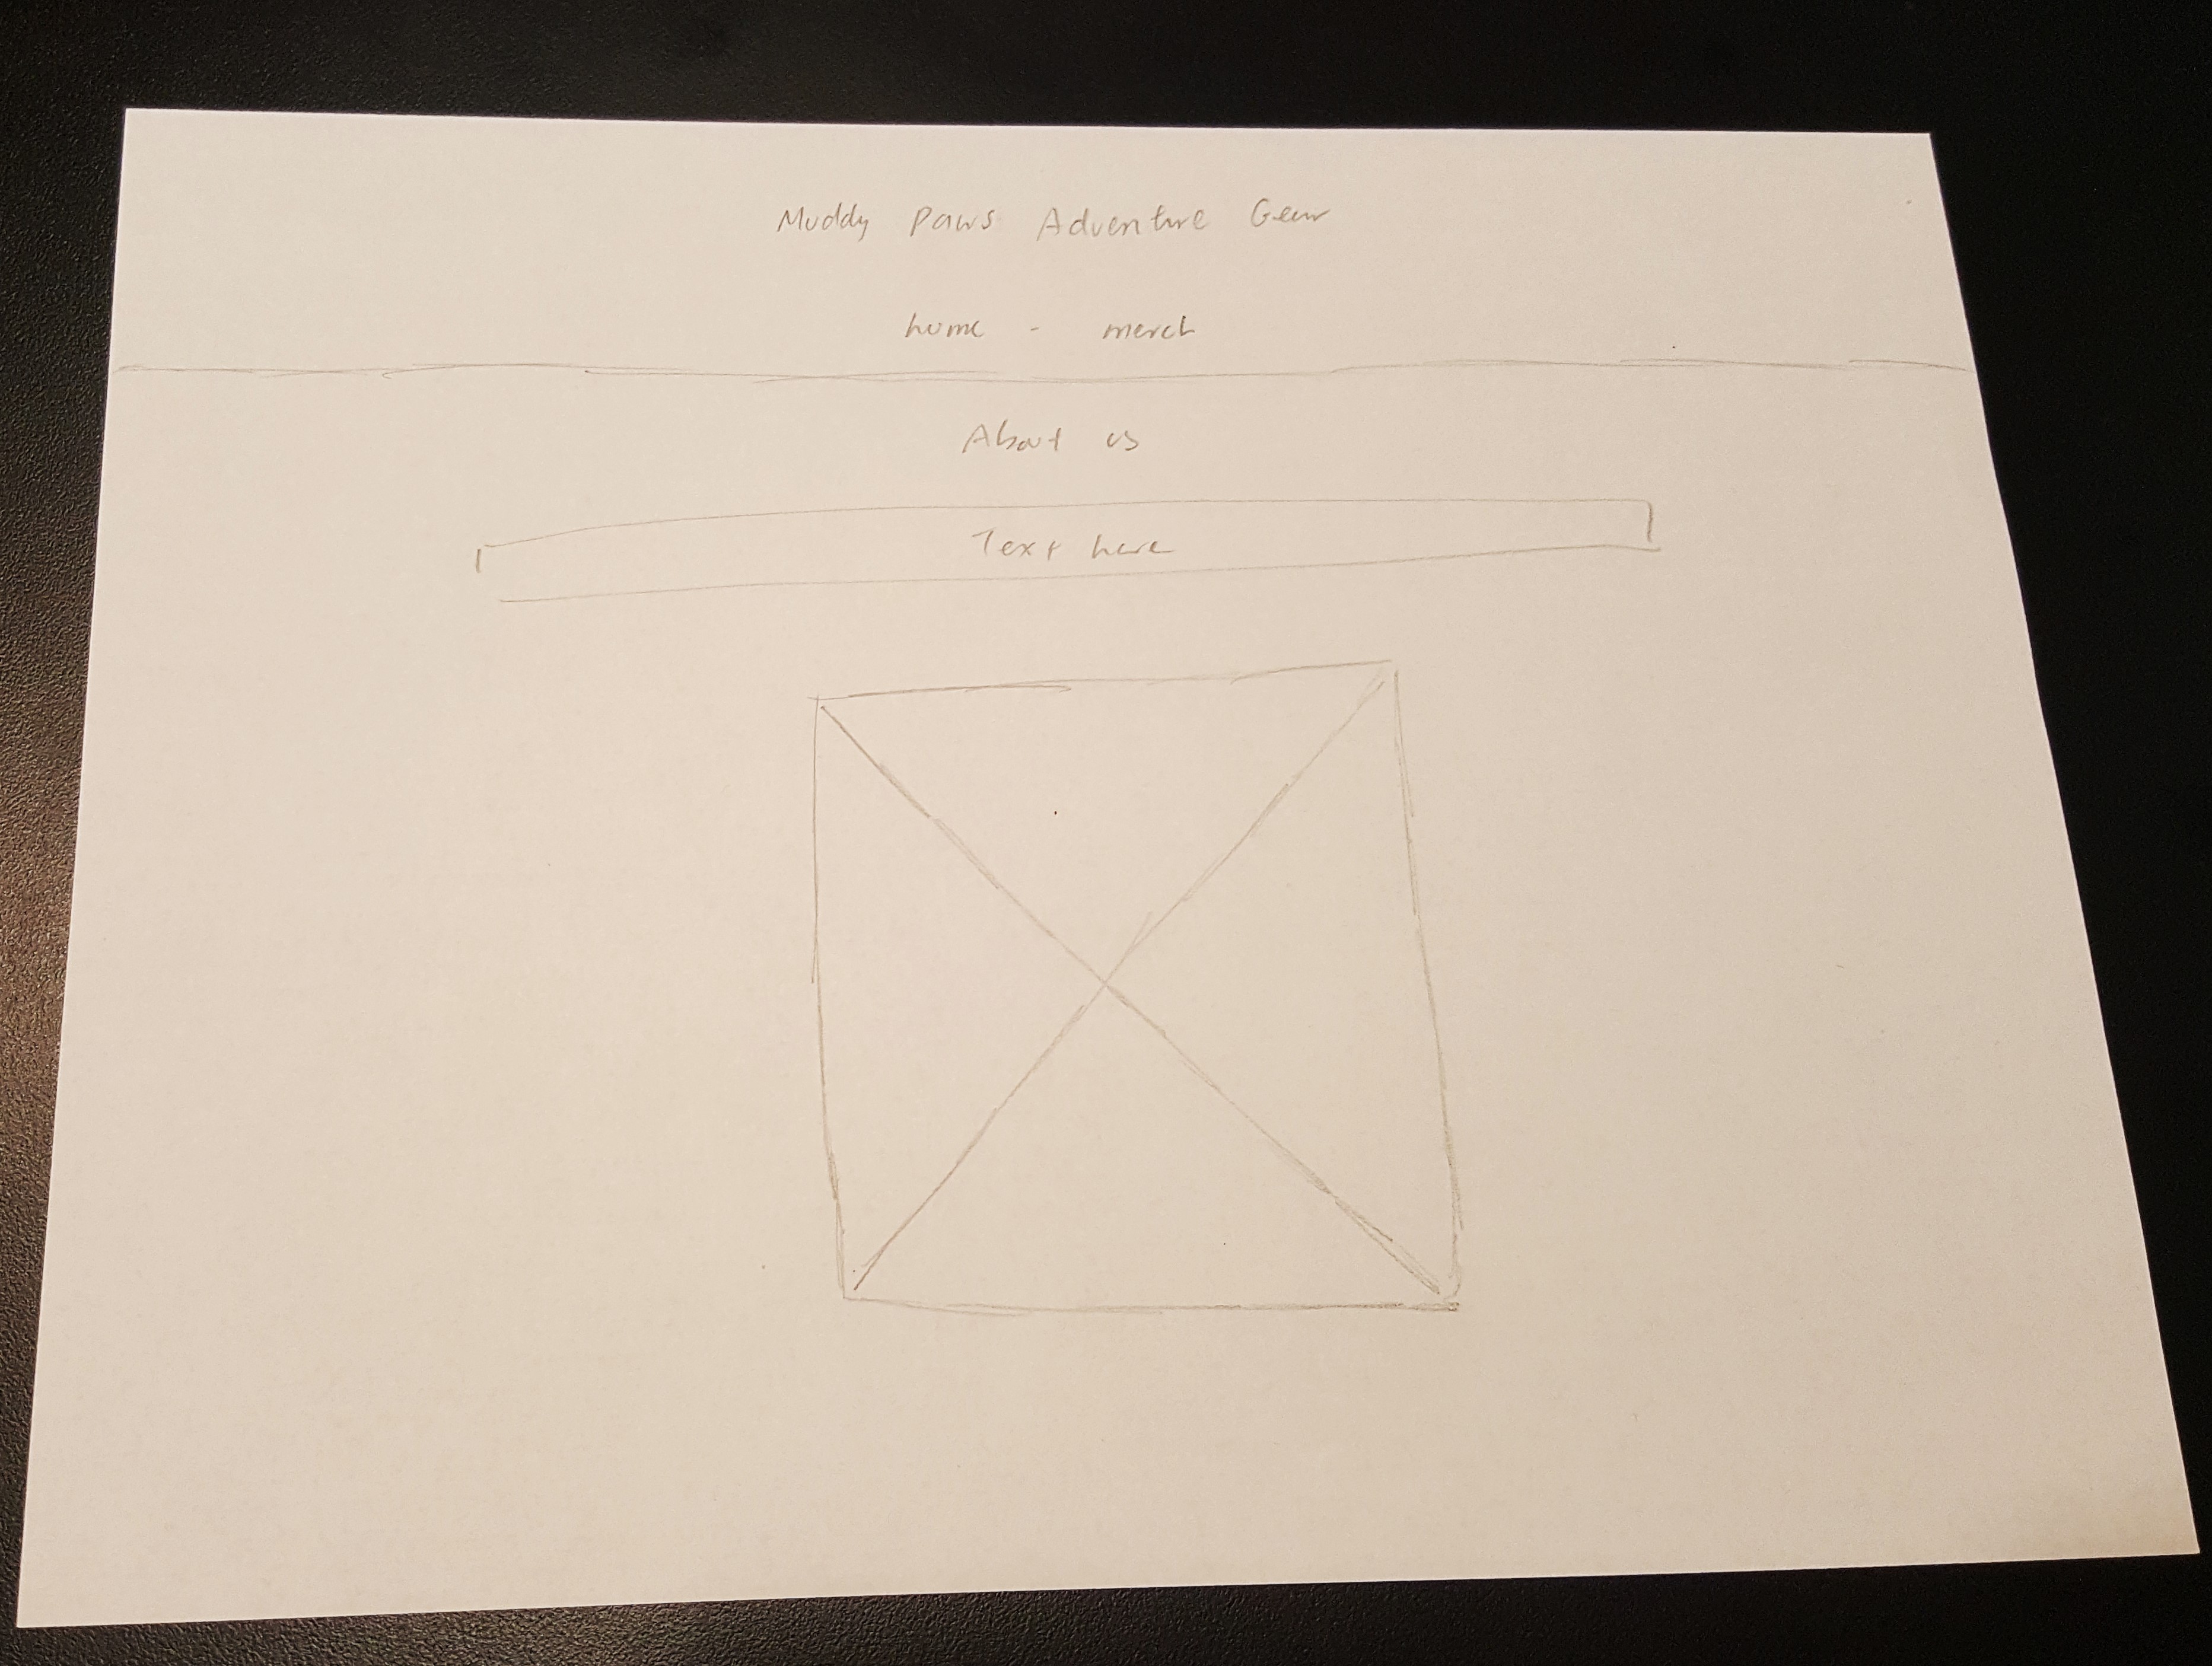 Muddy Paws Adventure Gear
home - merch
About us
Text here